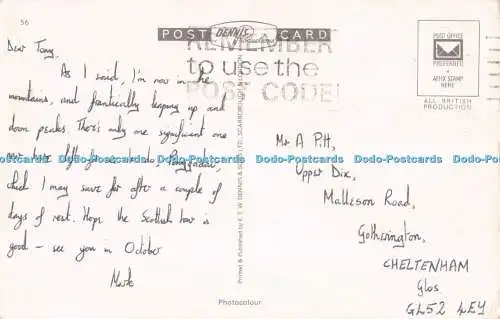 56
POST DENNIS Productions CARD
REMEMBER
to use the
POST CODE!
POST OFFICE
PREFERRED
AFFIX STAMP
HERE
ALL BRITISH
PRODUCTION
Dear Tony,
As I said, I'm now in the
mountains, and frantically leaping up and
down peaks. There's only one significant one
over here left for me to do
which I may save for after a couple of
days of rest. Hope the Scottish tour is
good – see you in October
Mark
Printed & Published by E. T. W. DENNIS & SONS LTD., SCARBOROUGH
Photocolour
Mr A Pitt,
Upper Dix,
Malleson Road,
Gotherington,
CHELTENHAM
Glos
GL52 4EY
Dodo-Postcards Dodo-Postcards Dodo-Postcards Dodo-Postcards Dodo-Postcards